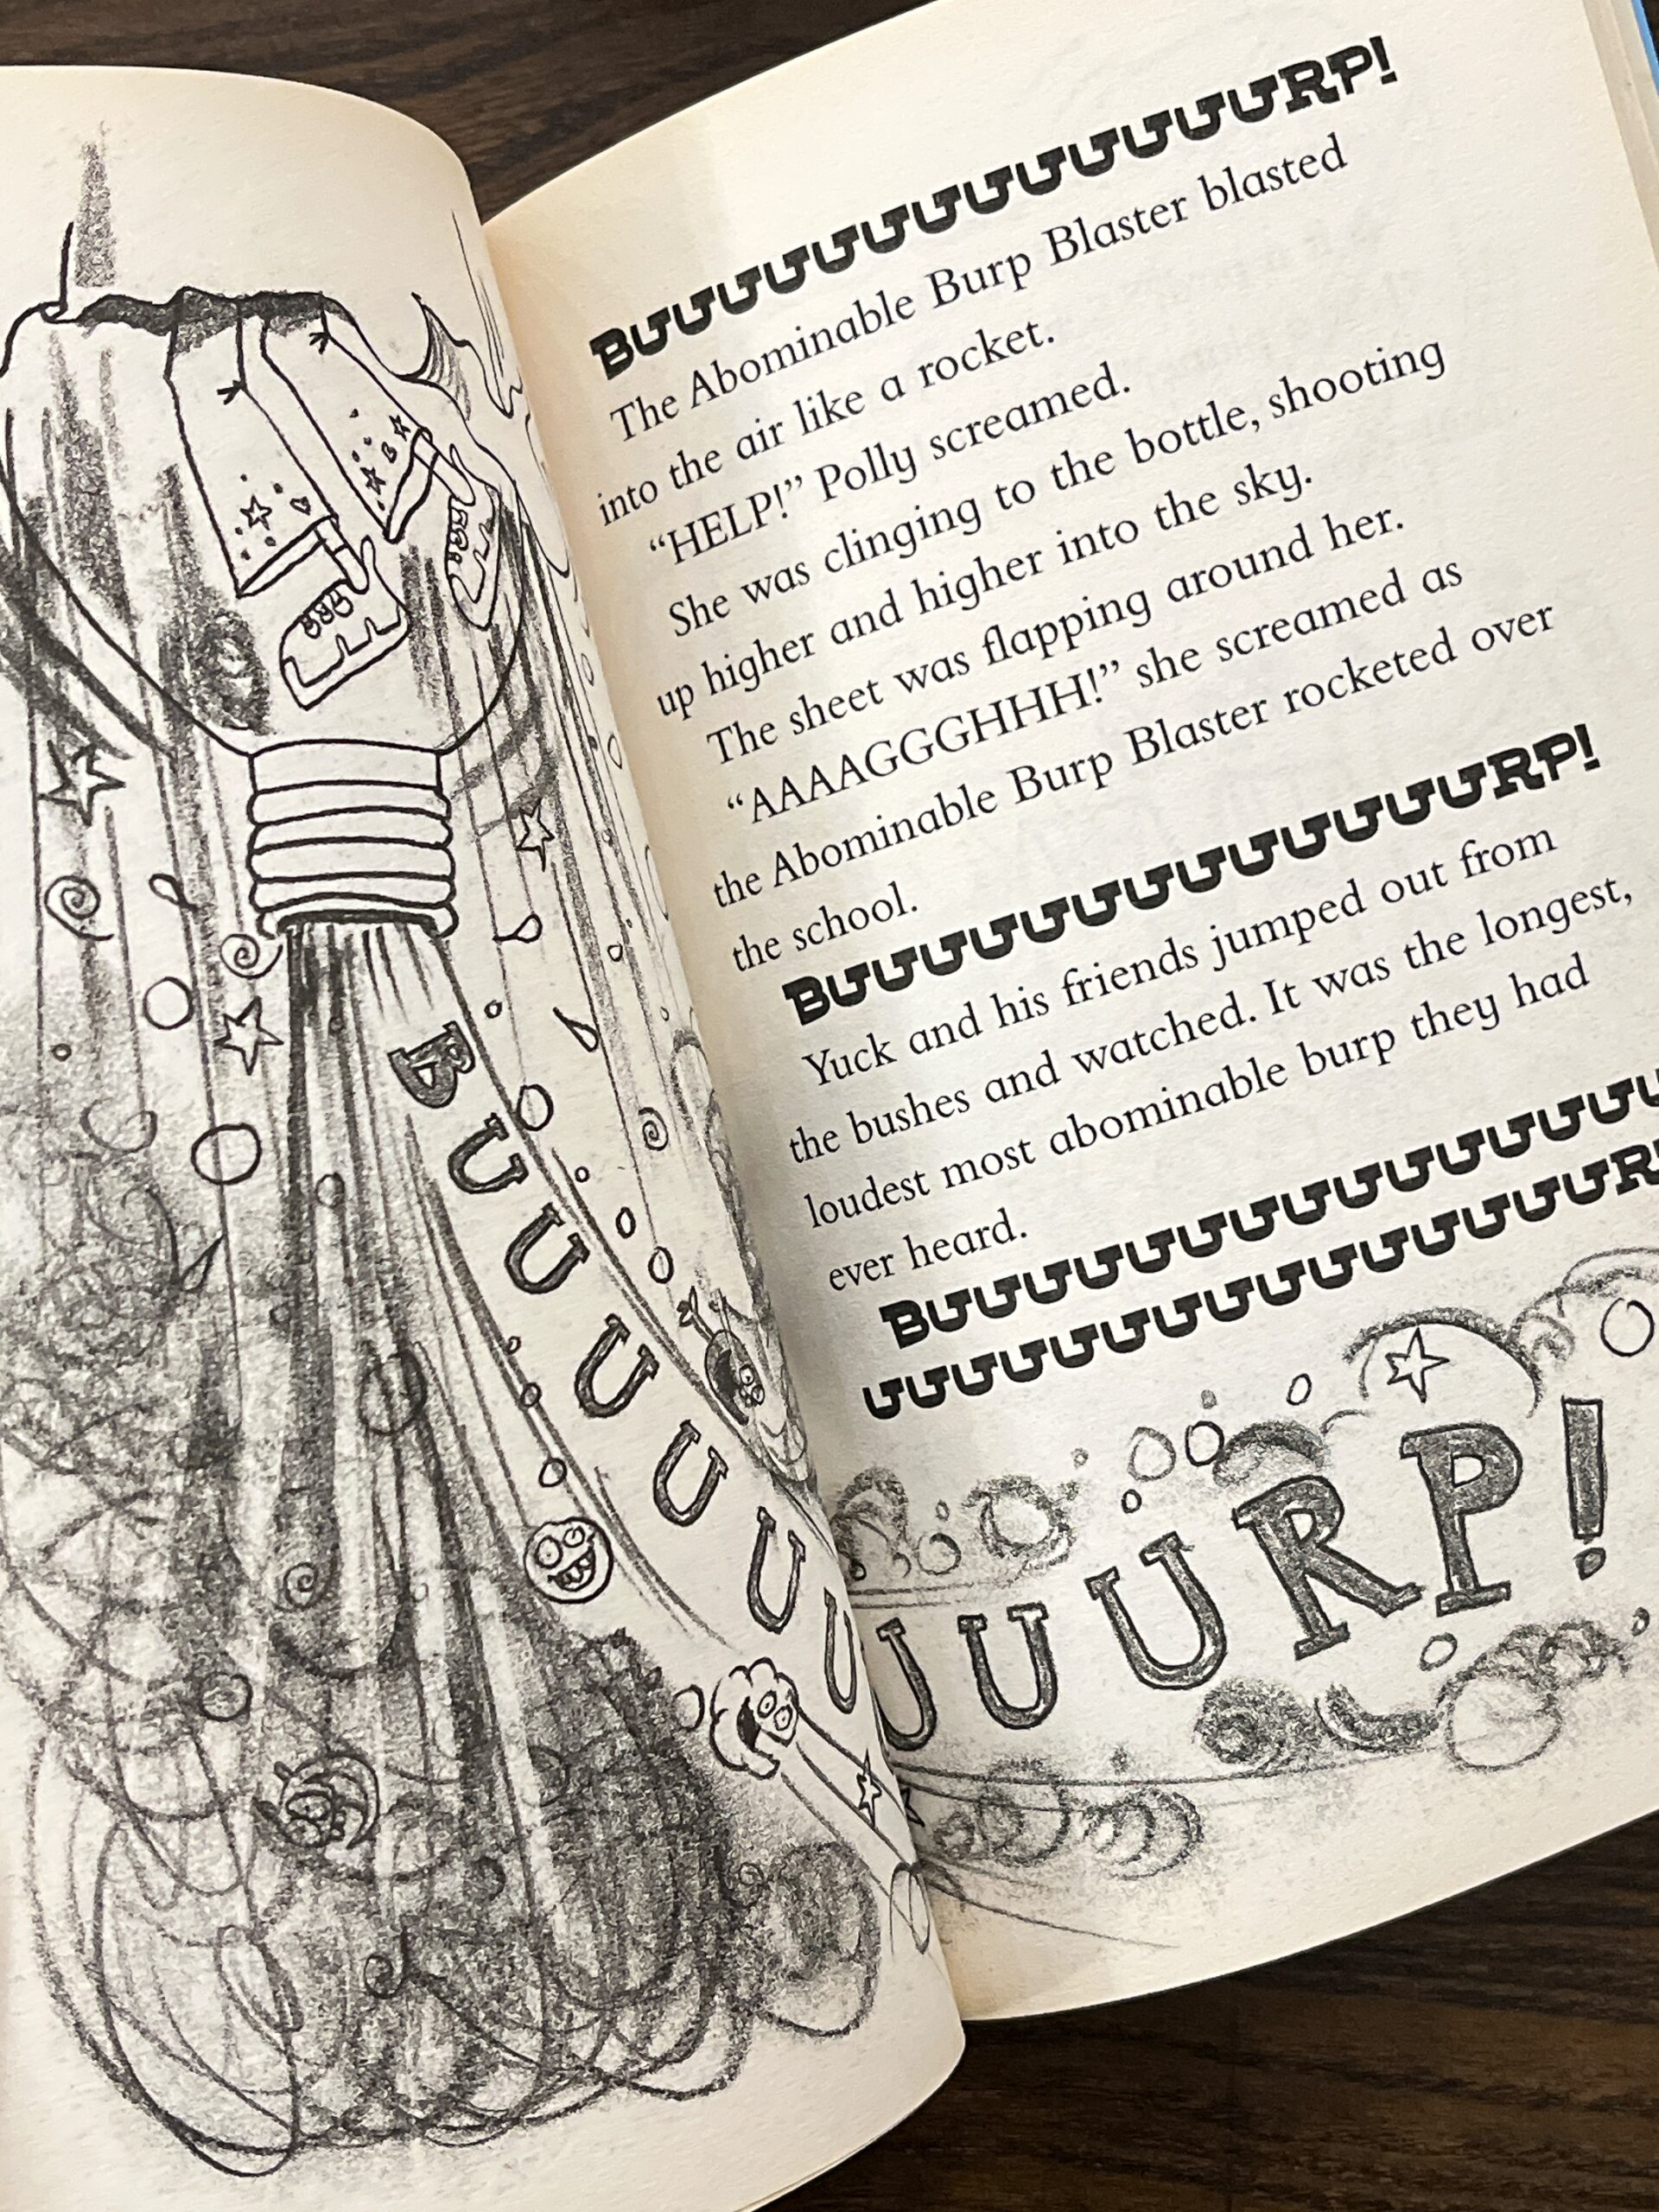 BUUUUUUUUUUUUURP!
The Abominable Burp Blaster blasted
into the air like a rocket.
“HELP!” Polly screamed.
She was clinging to the bottle, shooting
up higher and higher into the sky.
The sheet was flapping around her.
“AAAAGGGHHH!” she screamed as
the Abominable Burp Blaster rocketed over
the school.
BUUUUUUUUUUUUURP!
Yuck and his friends jumped out from
the bushes and watched. It was the longest,
loudest most abominable burp they had
ever heard.
BUUUUUUUUUUUUUU
UUUUUUUUUUUUUUUR
BUUUUUUUUURP!